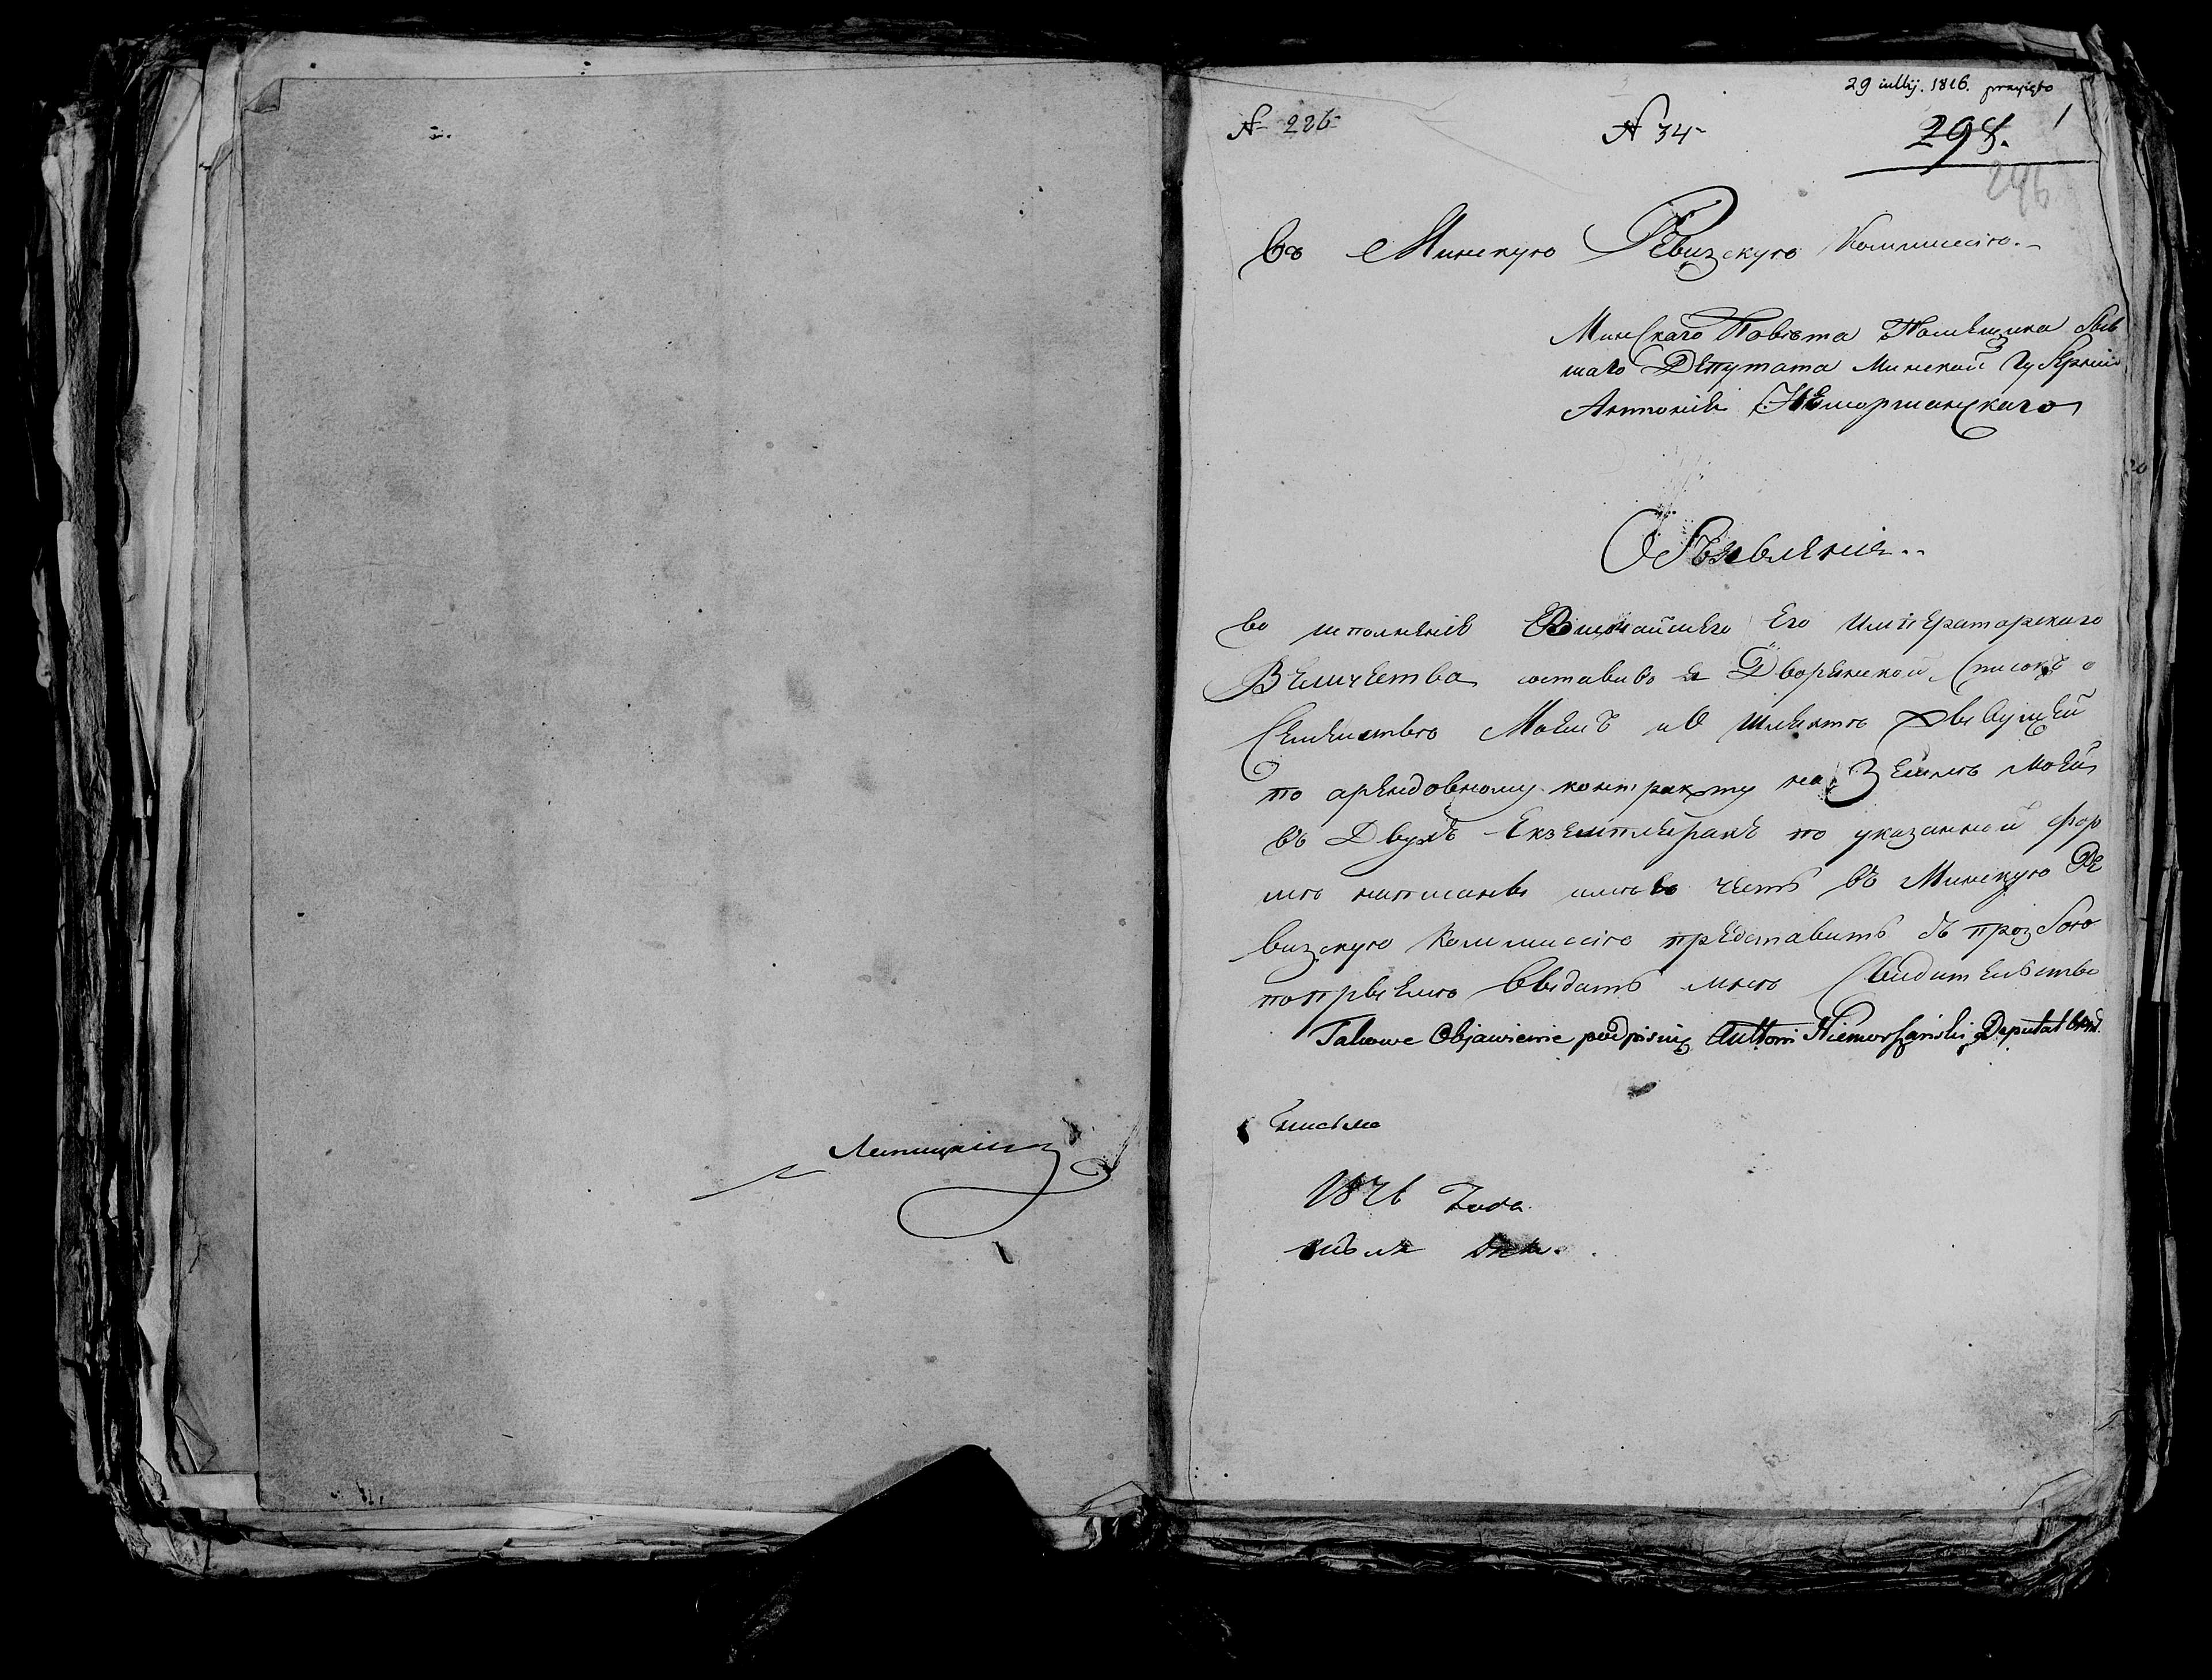 Лепицкій
29 iullij. 1816. przyięto
№ 226
№ 34
298.
1
296
Въ Минскую Ревизскую Коммиссію.
Минскаго Повѣта Помѣщика быв
шаго Депутата Минской Губерніи
Антонія Неморшанскаго
Объявленіе..
Во исполненіе Височайшего Его Императорскаго
Величества составивъ я Дворянской списокъ о
Семействѣ Моемъ и о шляхтѣ живущей
по арендовному контракту на Землѣ Моей
въ Двухъ Екземплярахъ по указанной фор
мѣ написаны имѣю честь въ Минскую Ре
визскую Коммиссію представить съ прозбою
по приемѣ видать мнѣ Свидительство
Takowe Objawienie podpisuię Antoni Niemorszański Deputat
1816 Года
июля дня.